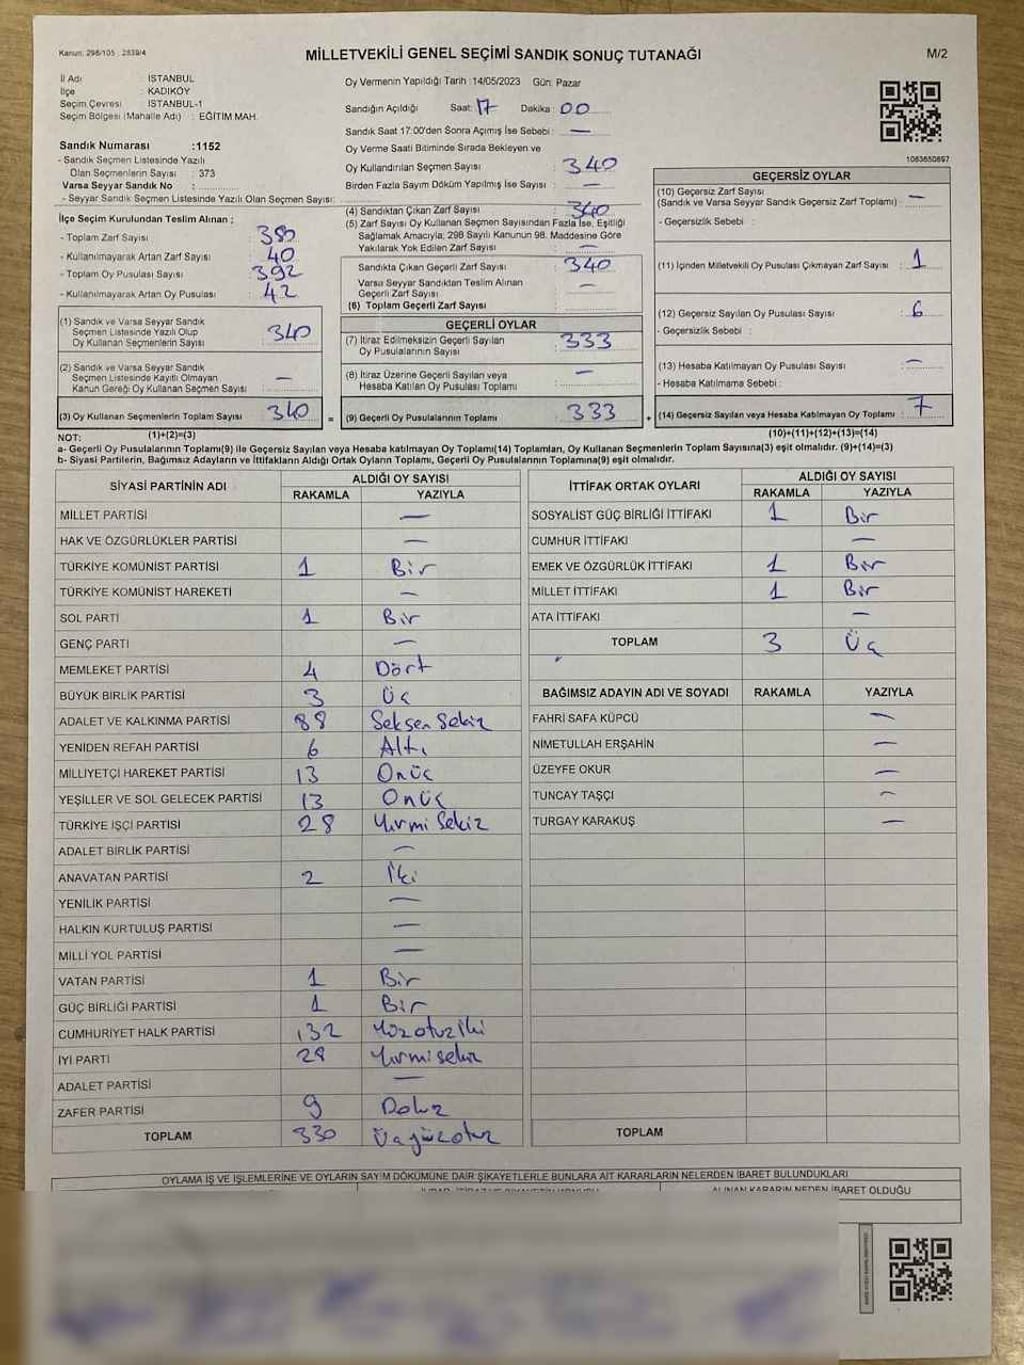 Kanun: 298/105 : 2839/4
MİLLETVEKİLİ GENEL SEÇİMİ SANDIK SONUÇ TUTANAĞI
M/2
İl Adı : İSTANBUL
İlçe : KADIKÖY
Seçim Çevresi : İSTANBUL-1
Seçim Bölgesi (Mahalle Adı) : EĞİTİM MAH.
Sandık Numarası :1152
- Sandık Seçmen Listesinde Yazılı
Olan Seçmenlerin Sayısı : 373
Varsa Seyyar Sandık No :
- Seyyar Sandık Seçmen Listesinde Yazılı Olan Seçmen Sayısı:
İlçe Seçim Kurulundan Teslim Alınan ;
- Toplam Zarf Sayısı : 380
- Kullanılmayarak Artan Zarf Sayısı : 40
- Toplam Oy Pusulası Sayısı : 392
- Kullanılmayarak Artan Oy Pusulası : 42
(1) Sandık ve Varsa Seyyar Sandık
Seçmen Listesinde Yazılı Olup
Oy Kullanan Seçmenlerin Sayısı : 340
(2) Sandık ve Varsa Seyyar Sandık
Seçmen Listesinde Kayıtlı Olmayan
Kanun Gereği Oy Kullanan Seçmen Sayısı : —
(3) Oy Kullanan Seçmenlerin Toplam Sayısı : 340 =
(1)+(2)=(3)
Oy Vermenin Yapıldığı Tarih :14/05/2023 Gün: Pazar
Sandığın Açıldığı Saat: 17 Dakika: 00
Sandık Saat 17:00'den Sonra Açımış İse Sebebi : —
Oy Verme Saati Bitiminde Sırada Bekleyen ve
Oy Kullandırılan Seçmen Sayısı : 340
Birden Fazla Sayım Döküm Yapılmış İse Sayısı : —
(4) Sandıktan Çıkan Zarf Sayısı : 340
(5) Zarf Sayısı Oy Kullanan Seçmen Sayısından Fazla İse, Eşitliği
Sağlamak Amacıyla, 298 Sayılı Kanunun 98. Maddesine Göre
Yakılarak Yok Edilen Zarf Sayısı : —
Sandıkta Çıkan Geçerli Zarf Sayısı : 340
Varsa Seyyar Sandıktan Teslim Alınan
Geçerli Zarf Sayısı : —
(6) Toplam Geçerli Zarf Sayısı :
GEÇERLİ OYLAR
(7) İtiraz Edilmeksizin Geçerli Sayılan
Oy Pusulalarının Sayısı : 333
(8) İtiraz Üzerine Geçerli Sayılan veya
Hesaba Katılan Oy Pusulası Toplamı : —
(9) Geçerli Oy Pusulalarının Toplamı : 333 +
1063650897
GEÇERSİZ OYLAR
(10) Geçersiz Zarf Sayısı
(Sandık ve Varsa Seyyar Sandık Geçersiz Zarf Toplamı) : —
- Geçersizlik Sebebi :
(11) İçinden Milletvekili Oy Pusulası Çıkmayan Zarf Sayısı : 1
(12) Geçersiz Sayılan Oy Pusulası Sayısı : 6
- Geçersizlik Sebebi :
(13) Hesaba Katılmayan Oy Pusulası Sayısı : —
- Hesaba Katılmama Sebebi :
(14) Geçersiz Sayılan veya Hesaba Katılmayan Oy Pusulası Toplamı : 7
(10)+(11)+(12)+(13)=(14)
NOT:
a- Geçerli Oy Pusulalarının Toplamı(9) ile Geçersiz Sayılan veya Hesaba katılmayan Oy Toplamı(14) Toplamları, Oy Kullanan Seçmenlerin Toplam Sayısına(3) eşit olmalıdır. (9)+(14)=(3)
b- Siyasi Partilerin, Bağımsız Adayların ve İttifakların Aldığı Ortak Oyların Toplamı, Geçerli Oy Pusulalarının Toplamına(9) eşit olmalıdır.
SİYASİ PARTİNİN ADI ALDIĞI OY SAYISI
RAKAMLA YAZIYLA
MİLLET PARTİSİ —
HAK VE ÖZGÜRLÜKLER PARTİSİ —
TÜRKİYE KOMÜNİST PARTİSİ 1 Bir
TÜRKİYE KOMÜNİST HAREKETİ —
SOL PARTİ 1 Bir
GENÇ PARTİ —
MEMLEKET PARTİSİ 4 Dört
BÜYÜK BİRLİK PARTİSİ 3 Üç
ADALET VE KALKINMA PARTİSİ 88 Seksen Sekiz
YENİDEN REFAH PARTİSİ 6 Altı
MİLLİYETÇİ HAREKET PARTİSİ 13 Onüç
YEŞİLLER VE SOL GELECEK PARTİSİ 13 Onüç
TÜRKİYE İŞÇİ PARTİSİ 28 Yirmi Sekiz
ADALET BİRLİK PARTİSİ —
ANAVATAN PARTİSİ 2 İki
YENİLİK PARTİSİ —
HALKIN KURTULUŞ PARTİSİ —
MİLLİ YOL PARTİSİ —
VATAN PARTİSİ 1 Bir
GÜÇ BİRLİĞİ PARTİSİ 1 Bir
CUMHURİYET HALK PARTİSİ 132 Yüzotuziki
İYİ PARTİ 28 Yirmisekiz
ADALET PARTİSİ —
ZAFER PARTİSİ 9 Dokuz
TOPLAM 330 Üçyüzotuz
İTTİFAK ORTAK OYLARI ALDIĞI OY SAYISI
RAKAMLA YAZIYLA
SOSYALİST GÜÇ BİRLİĞİ İTTİFAKI 1 Bir
CUMHUR İTTİFAKI —
EMEK VE ÖZGÜRLÜK İTTİFAKI 1 Bir
MİLLET İTTİFAKI 1 Bir
ATA İTTİFAKI —
TOPLAM 3 Üç
BAĞIMSIZ ADAYIN ADI VE SOYADI RAKAMLA YAZIYLA
FAHRİ SAFA KÜPCÜ —
NİMETULLAH ERŞAHİN —
ÜZEYFE OKUR —
TUNCAY TAŞÇI —
TURGAY KARAKUŞ —
TOPLAM
OYLAMA İŞ VE İŞLEMLERİNE VE OYLARIN SAYIM DÖKÜMÜNE DAİR ŞİKAYETLERLE BUNLARA AİT KARARLARIN NELERDEN İBARET BULUNDUKLARI
ALINAN KARARIN NEDEN İBARET OLDUĞU